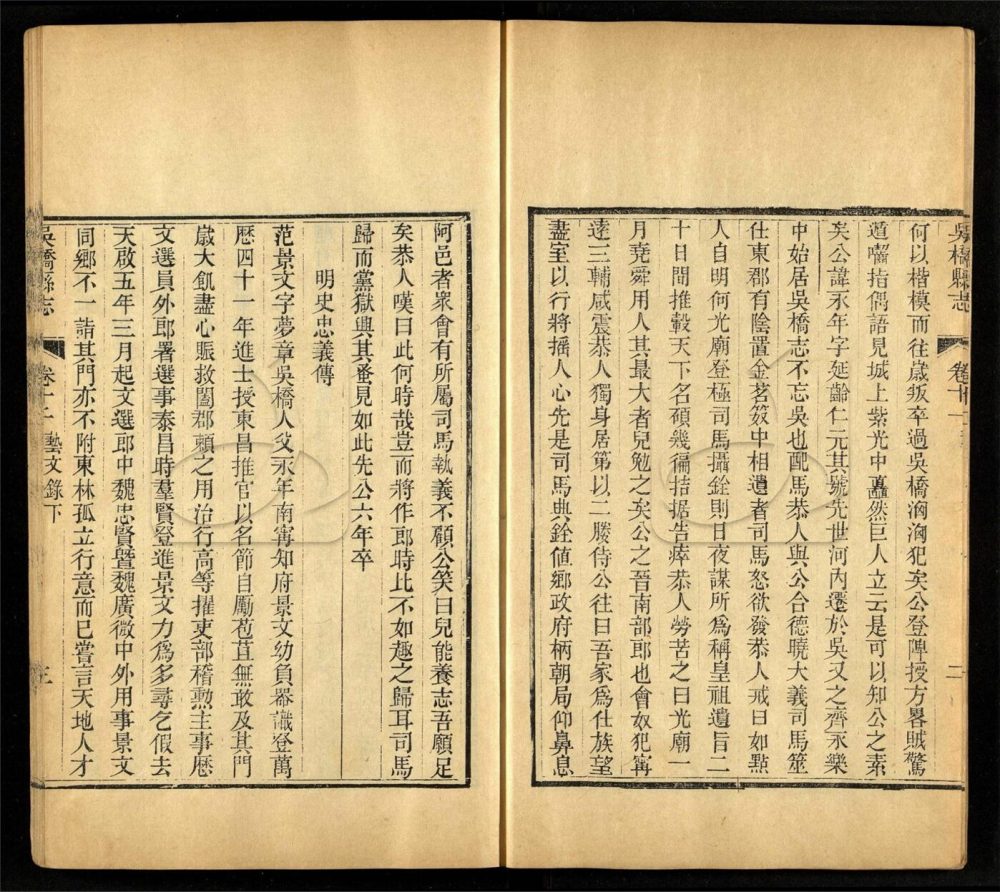 吳橋縣志 卷十一 二
何以楷模而往歲叛卒過吳橋洶洶犯矣公登陴授方畧賊驚
遁囓指偶語見城上紫光中矗然巨人立云是可以知公之素
矣公諱永年字延齡仁元其號先世河內遷於吳又之齊永樂
中始居吳橋志不忘吳也配馬恭人與公合德曉大義司馬筮
仕東郡有陰置金茗笈中相遺者司馬怒欲發恭人戒曰如點
人自明何光廟登極司馬攝銓則日夜謀所爲稱皇祖遺旨二
十日間推轂天下名碩幾徧拮据告瘁恭人勞苦之曰光廟一
月堯舜用人其最大者兒勉之矣公之晉南部郎也會奴犯寗
遠三輔咸震恭人獨身居第以二媵侍公往曰吾家爲仕族望
盡室以行將搖人心先是司馬典銓値鄉政府柄朝局仰鼻息
阿邑者衆會有所屬司馬執義不顧公笑曰兒能養志吾願足
矣恭人嘆曰此何時哉豈而將作郎時比不如趣之歸耳司馬
歸而黨獄興其蚤見如此先公六年卒
明史忠義傳
范景文字夢章吳橋人父永年南寗知府景文幼負器識登萬
歷四十一年進士授東昌推官以名節自勵苞苴無敢及其門
歲大飢盡心賑救闔郡賴之用治行高等擢吏部稽勲主事歷
文選員外郎署選事泰昌時羣賢登進景文力爲多尋乞假去
天啟五年三月起文選郎中魏忠賢曁魏廣微中外用事景文
同鄉不一詣其門亦不附東林孤立行意而已嘗言天地人才
吳橋縣志 卷十一 藝文錄下 三